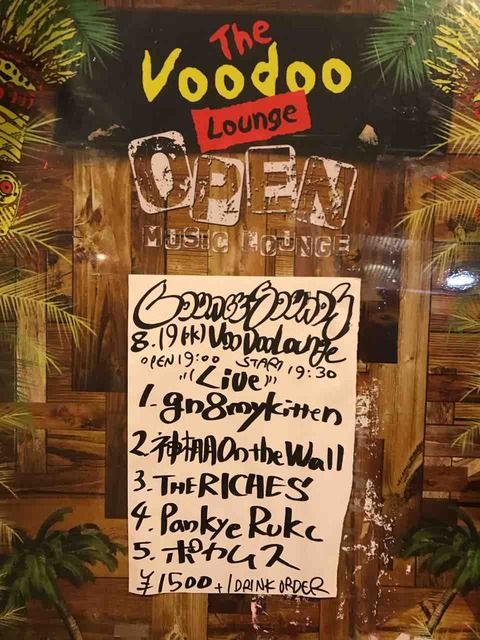 The
Voodoo
Lounge
OPEN
MUSIC LOUNGE
8.19 Voodoo Lounge
OPEN 19:00 START 19:30
Live
1. gn8mykitten
2. On the Wall
3. THE RICHES
4. Pankye
5.
¥1500 +1 DRINK ORDER